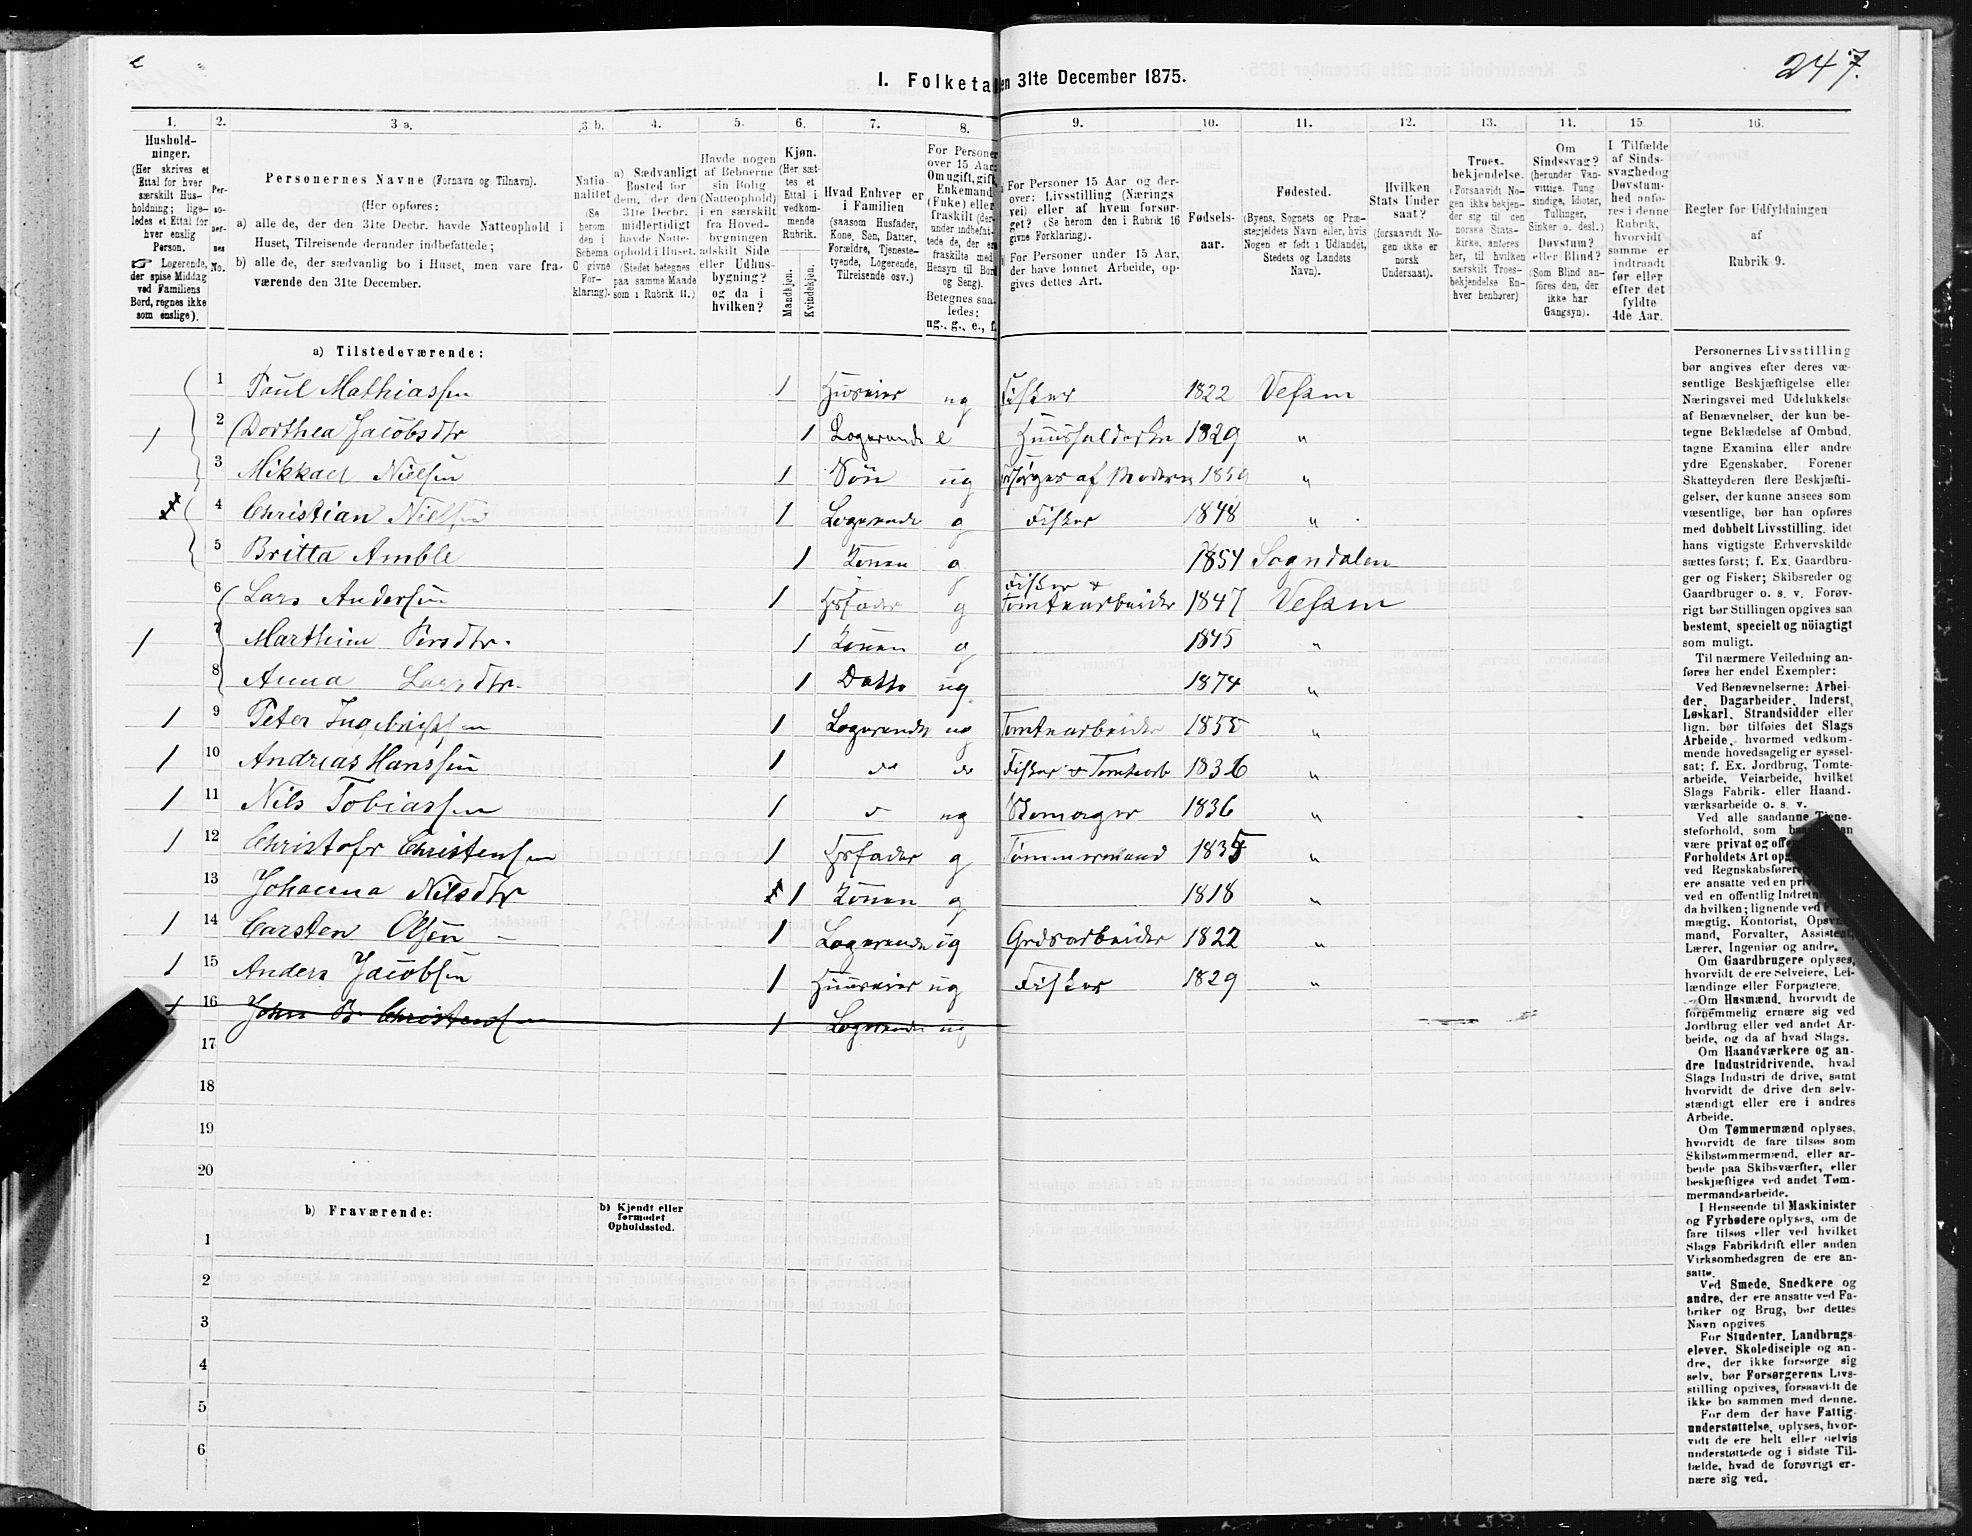 247.
I. Folketa en 31te December 1875.
1. 2. 3 a. 3 b. 4. 5. 6. 7. 8. 9. 10. 11. 12. 13. 14. 15. 16.
Hushold-
ninger.
(Her skrives et
Ettal for hver
særskilt Hus-
holdning; lige-
ledes et Ettal for
hver enslig
Person.
☞ Logerende,
der spise Middag
ved Familiens
Bord, regnes ikke
som enslige).
Per-
so-
ner-
nes
No.
Personernes Navne (Fornavn og Tilnavn).
(Her opføres:
a) alle de, der den 31te Decbr. havde Natteophold i
Huset, Tilreisende derunder indbefattede;
b) alle de, der sædvanlig bo i Huset, men vare fra-
værende den 31te December.
Natio-
nalitet
(Se
herom
den i
Schema
C givne
For-
klaring).
a) Sædvanligt
Bosted for
dem, der den
31te Decbr.
midlertidigt
havde Natte-
ophold i Huset.
(Stedet betegnes
paa samme Maade
som i Rubrik 11.)
Havde nogen
af Beboerne
sin Bolig
(Natteophold)
i en særskilt
fra Hoved-
bygningen
adskilt Side
eller Udhus-
bygning?
og da i
hvilken?
Kjøn.
(Her sæt-
tes et
Ettal i
vedkom-
mende
Rubrik.
Mandkjøn.
Kvindekjøn.
Hvad Enhver er
i Familien
(saasom Husfader,
Kone, Søn, Datter,
Forældre, Tjeneste-
tyende, Logerende,
Tilreisende osv.)
For Persone
over 15 Aar:
Om ugift, gift,
Enkemand
(Enke) eller
fraskilt (der-
under indbefat-
tede de, der er
fraskilte med
Hensyn til Bord
og Seng).
Betegnes saa-
ledes:
ug., g., e., f.
For Personer 15 Aar og der-
over: Livsstilling (Nærings
vei) eller af hvem forsør-
get? (Se herom den i Rubrik 16
givne Forklaring).
For Personer under 15 Aar,
der have lønnet Arbeide, op-
gives dettes Art.
Fødsels-
aar.
Fødested.
(Byens, Sognets og Præ-
stegjeldets Navn eller, hvis
Nogen er født i Udlandet,
Stedets og Landets
Navn).
Hvilken
Stats Under
saat?
(forsaavidt No-
gen ikke er
norsk
Undersaat).
Troes-
bekjendelse.
(Forsaavidt No-
gen ikke bekjen-
der sig til den
norske Stats-
kirke, anføres
her, til hvilken
særskilt Troes-
bekjendelse En-
hver henhører)
Om
Sindssvag?
(herunder Van-
vittige, Tung
sindige, Idioter,
Tullinger,
Sinker o. desl.)
Døvstum?
eller Blind?
(Som Blind an-
føres den, der
ikke har
Gangsyn).
I Tilfælde
af Sinds-
svaghed og
Døvstum-
hed anfø-
res i denne
Rubrik,
hvorvidt
samme er
indtraadt
før eller
efter det
fyldte
4de Aar.
Regler før Udfyldningen
af
Rubrik 9.
a) Tilstedeværende:
1 Paul Mathiassen 1 Huseier ug Fisker 1822 Vefsen
1 2 Dorthea Jacobsdtr 1 Logerende e Huusholderske 1829 "
3 Mikkael Nielsen 1 Søn ug forsørges af Modern 1859 "
4 Christian Nielsen 1 Logerende g Fisker 1848 "
5 Britta Amble 1 Konen g 1854 Sogndalen
6 Lars Andersen 1 Hsfader g Fisker & Tomtearbeider 1847 Vefsen
1 7 Marthine Persdtr. 1 Konen g 1845 "
8 Anna Larsdtr. 1 Datte ug 1874 "
1 9 Peter Ingebrigtsen 1 Logerende ug Tomtearbeider 1855 "
1 10 Andreas Hanssen 1 do do Fisker & Tomtearb 1836 "
1 11 Nils Tobiassen 1 d ug Skomager 1836 "
1 12 Christofer Christensen 1 Hsfader g Tømmermand 1835 "
13 Johanna Nilsdtr 1 Konen g 1818 "
1 14 Carsten Olsen 1 Logerende ug Grdsarbeider 1822 "
1 15 Anders Jacobsen 1 Huuseier ug Fisker 1829 "
1 16 John B. Christensen 1 Logerende ug
17
18
19
20
b) Fraværende:
b) Kjendt eller
formodet
Opholdssted.
1
2
3
4
5
6
Personernes Livsstilling
bør angives efter deres væ-
sentlige Beskjæftigelse eller
Næringsvei med Udelukkelse
af Benævnelser, der kun be-
tegne Beklædelse af Ombud,
tagne Examina eller andre
ydre Egenskaber. Forener
Skatteyderen flere Beskjæfti-
gelser, der kunne ansees som
væsentlige, bør han opføres
med dobbelt Livsstilling, idet
hans vigtigste Erhvervskilde
sættes først; f. Ex. Gaardbru-
ger og Fisker; Skibsreder og
Gaardbruger o. s. v. Forøv-
rigt bør Stillingen opgives saa
bestemt, specielt og nöiagtigt
som muligt.
Til nærmere Veiledning an-
føres her endel Exempler:
Ved Benævnelserne: Arbei-
der, Dagarbeider, Inderst,
Løskarl, Strandsidder eller
lign. bør tilføies det Slags
Arbeide, hvormed vedkom-
mende hovedsagelig er syssel-
sat; f. Ex. Jordbrug, Tomte-
arbeide, Veiarbeide, hvilket
Slags Fabrik- eller Haand-
værksarbeide o. s. v.
Ved alle saadanne Tjene-
steforhold, som
være privat og
Forholdets Art
ved Regnskabsføre
ere ansatte ved en
ved en offentlig Indretn
da hvilken; lignende ved
mægtig, Kontorist, Opsy
mand, Forvalter, Assistent,
Lærer, Ingeniør og andre.
Om Gaardbrugere oplyses,
hvorvidt de ere Selveiere, Lei-
lændinge eller Forpagtere.
Om Husmænd, hvorvidt de
fornemmelig ernære sig ved
Jordbrug eller ved andet Ar-
beide, og da af hvad Slags.
Om Haandværkere og an-
dre Industridrivende, hvad
Slags Industri de drive, samt
hvorvidt de drive den selv-
stændigt eller ere i andres
Arbeide.
Om Tømmermænd oplyses,
hvorvidt de fare tilsøs som
Skibstømmermænd, eller ar-
beide paa Skibsværfter, eller
beskjæftiges ved andet Tøm-
mermandsarbeide.
I Henseende til Maskinister
og Fyrbødere oplyses, om de
fare tilsøs eller ved hvilket
Slags Fabrikdrift eller anden
Virksomhedsgren de ere an-
satte.
Ved Smede, Snedkere og
andre, der ere ansatte ved Fa-
briker og Brug, bør dettes
Navn opgives
For Studenter, Landbrugs-
elever, Skoledisciple og an-
dre, der ikke forsørge sig
selv, bør Forsørgerens Livs-
stilling opgives, forsaavidt de
ikke bo sammen med denne.
For dem der have Fattig-
understøttelse, oplyses, hvor-
vidt de ere helt eller delvis
understøttede og i sidste Til-
fælde, hvad de forøvrigt er-
nære sig ved.